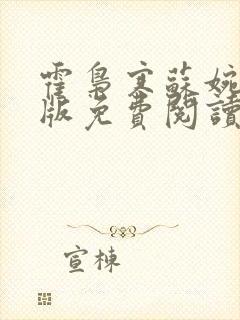 霍梟寒蘇婉
版免費閱讀
宣棟